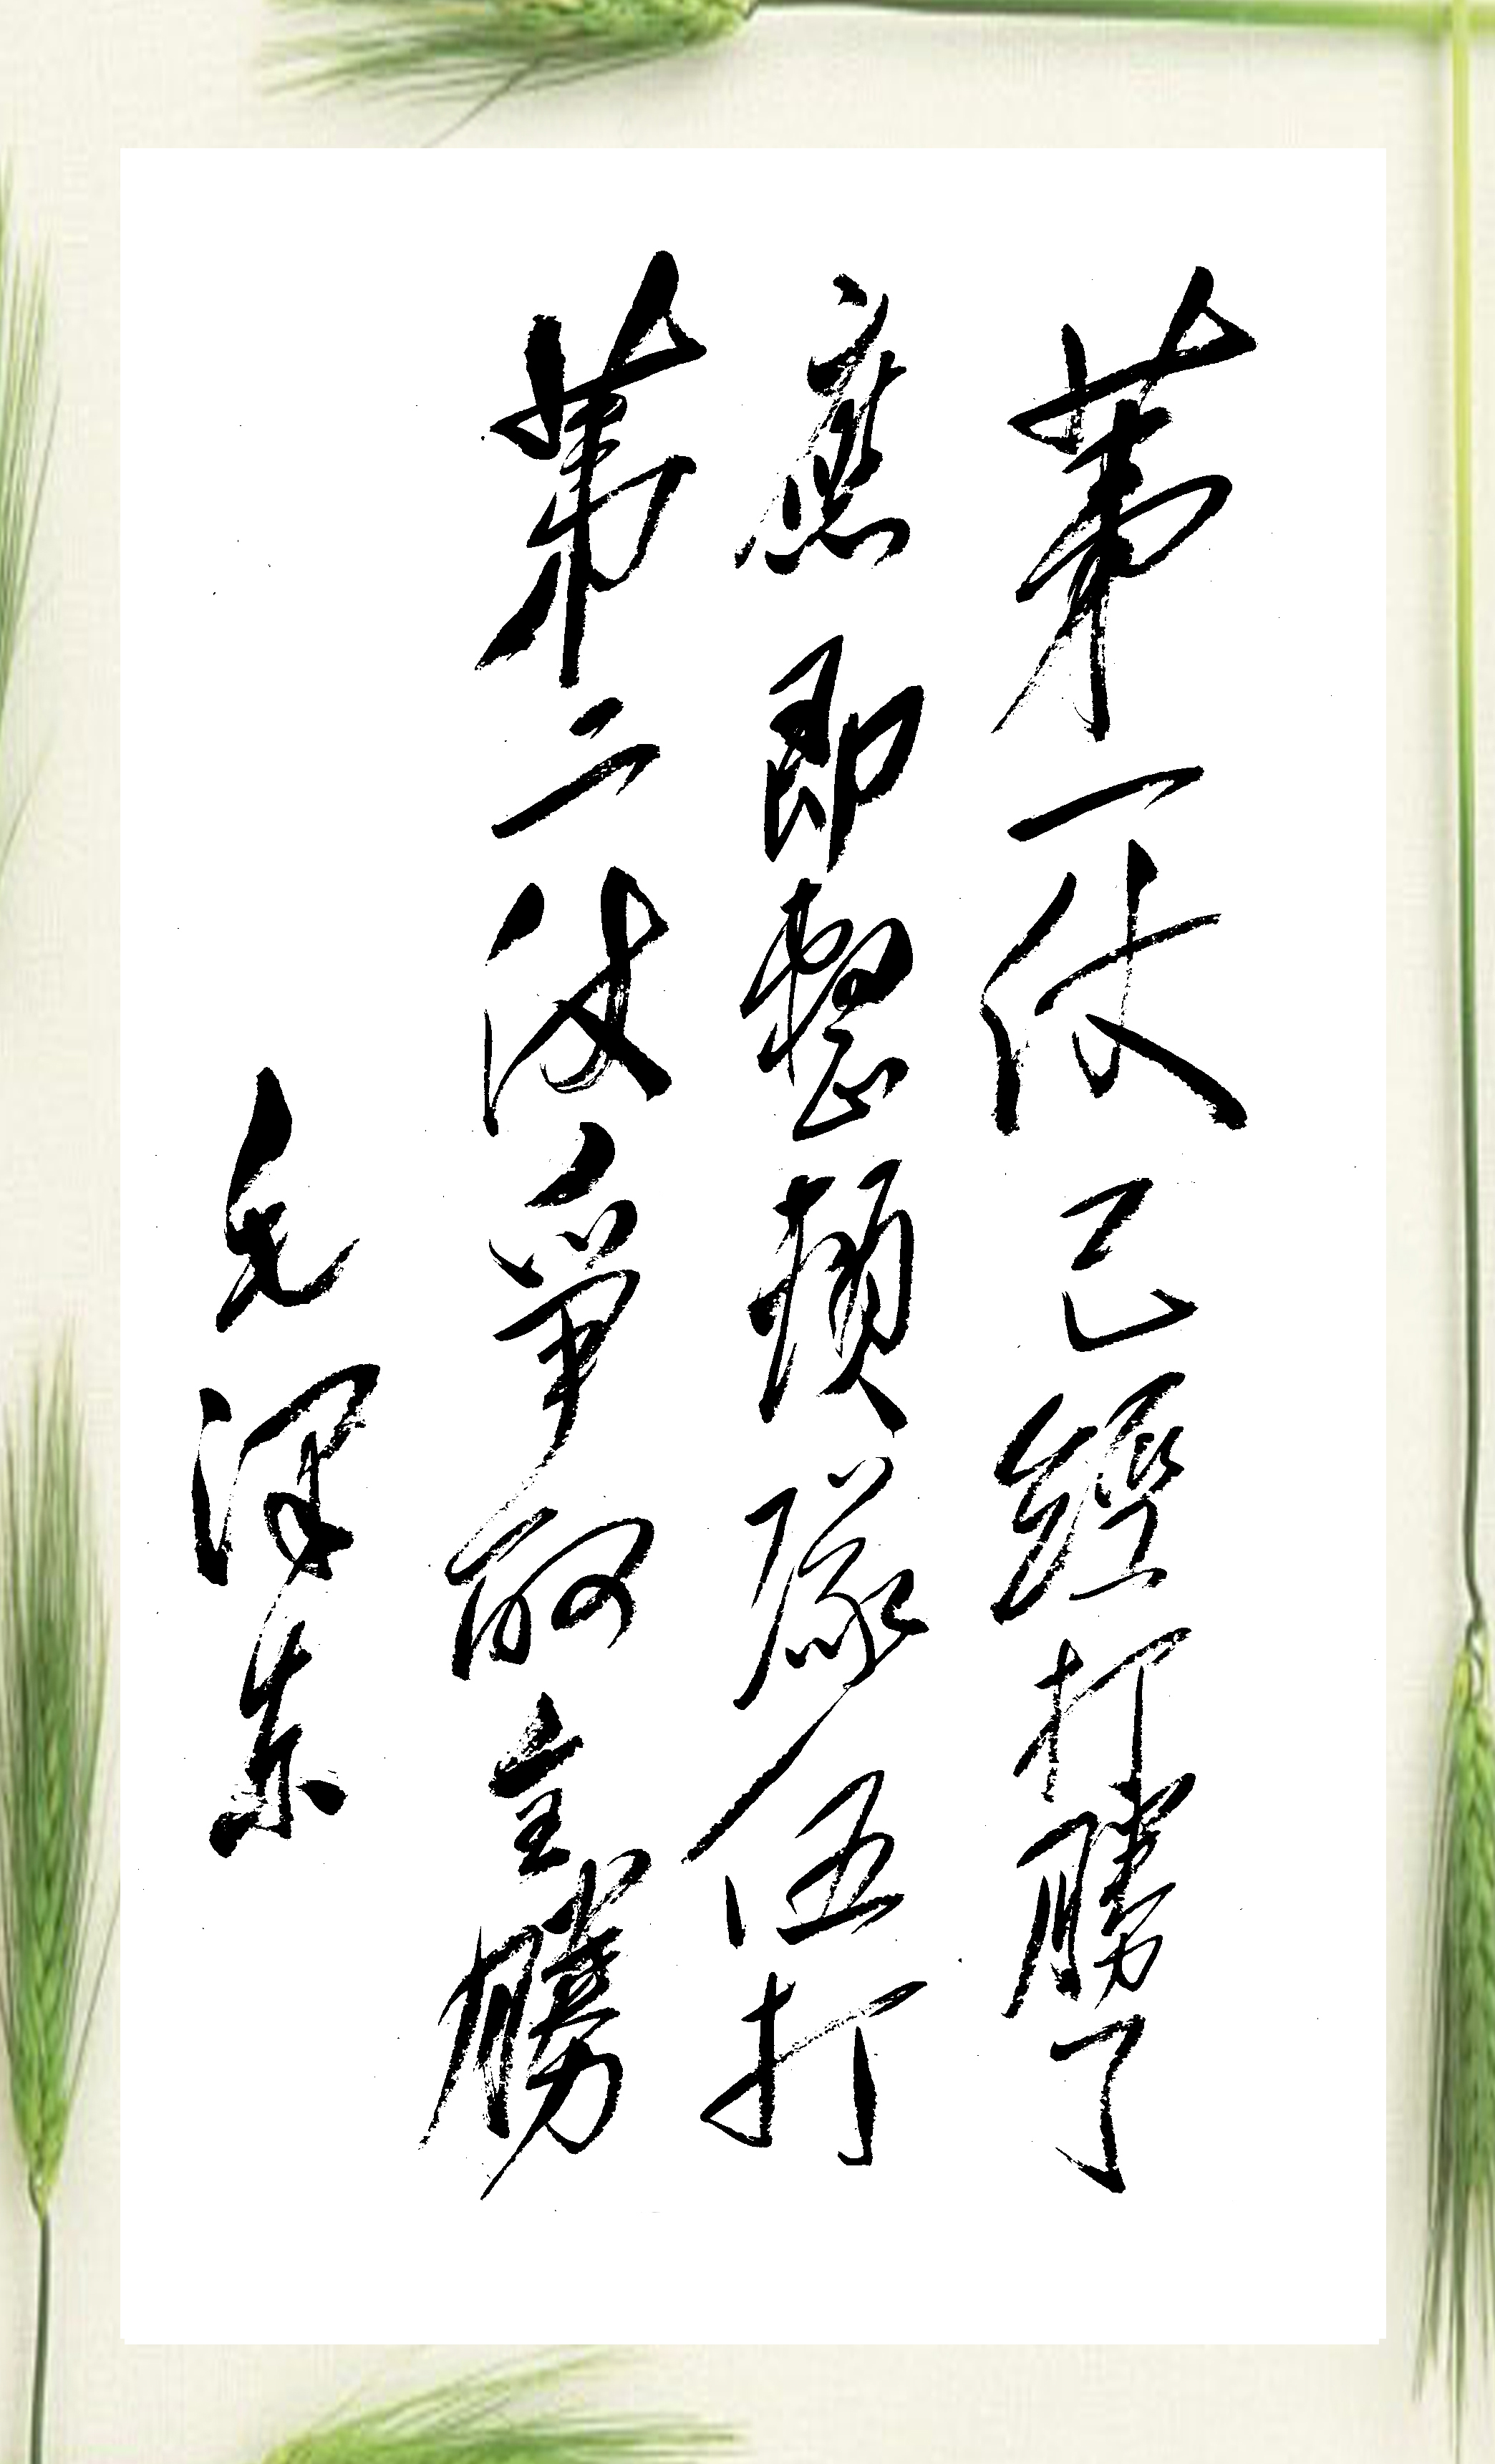 第一仗已經打勝了
應即整頓隊伍打
第二仗爭取全勝
毛澤東